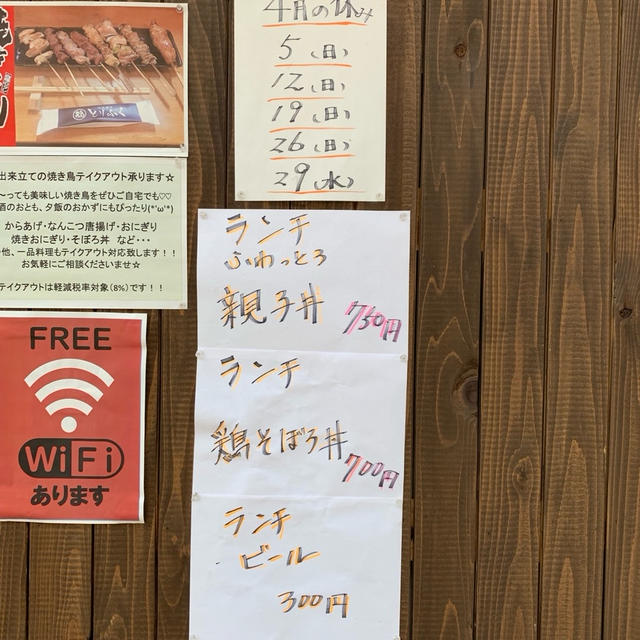 とりふく
出来立ての焼き鳥テイクアウト承ります☆
〜っても美味しい焼き鳥をぜひご自宅でも♡♡
酒のおとも、夕飯のおかずにもぴったり(*'ω'*)
からあげ・なんこつ唐揚げ・おにぎり
焼きおにぎり・そぼろ丼 など・・・
他、一品料理もテイクアウト対応致します！！
お気軽にご相談くださいませ☆
テイクアウトは軽減税率対象(8%)です！！
FREE
WiFi
あります
4月の休み
5(日)
12(日)
19(日)
26(日)
29(水)
ランチ
ふわっとろ
親子丼 750円
ランチ
鶏そぼろ丼
700円
ランチ
ビール
300円